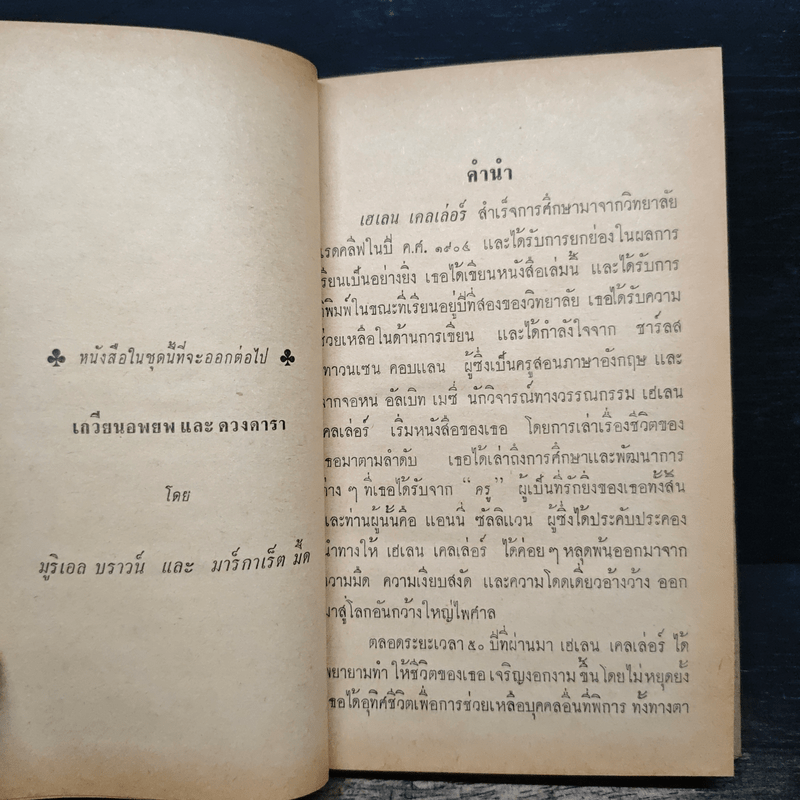 ♣ หนังสือในชุดนี้ที่จะออกต่อไป ♣
เกวียนอพยพ และ ดวงดารา
โดย
มูริเอล บราวน์ และ มาร์กาเร็ต มี้ด
คำนำ
เฮเลน เคลเล่อร์ สำเร็จการศึกษามาจากวิทยาลัย
แรดคลิฟในปี ค.ศ. ๑๙๐๔ และได้รับการยกย่องในผลการ
เรียนเป็นอย่างยิ่ง เธอได้เขียนหนังสือเล่มนี้ และได้รับการ
ตีพิมพ์ในขณะที่เรียนอยู่ปีที่สองของวิทยาลัย เธอได้รับความ
ช่วยเหลือในด้านการเขียน และได้กำลังใจจาก ชาร์ลส
ทาวนเซน คอบแลน ผู้ซึ่งเป็นครูสอนภาษาอังกฤษ และ
จากจอห์น อัลเบิท เมซี่ นักวิจารณ์ทางวรรณกรรม เฮเลน
เคลเล่อร์ เริ่มหนังสือของเธอ โดยการเล่าเรื่องชีวิตของ
เธอมาตามลำดับ เธอได้เล่าถึงการศึกษาและพัฒนาการ
ต่าง ๆ ที่เธอได้รับจาก "ครู" ผู้เป็นที่รักยิ่งของเธอทั้งสิ้น
และท่านผู้นั้นคือ แอนนี่ ซัลลิแวน ผู้ซึ่งได้ประคับประคอง
นำทางให้ เฮเลน เคลเล่อร์ ได้ค่อย ๆ หลุดพ้นออกมาจาก
ความมืด ความเงียบสงัด และความโดดเดี่ยวอ้างว้าง ออก
มาสู่โลกอันกว้างใหญ่ไพศาล
ตลอดระยะเวลา ๕๐ ปีที่ผ่านมา เฮเลน เคลเล่อร์ ได้
พยายามทำ ให้ชีวิตของเธอ เจริญงอกงาม ขึ้น โดยไม่หยุดยั้ง
เธอได้อุทิศชีวิตเพื่อการช่วยเหลือบุคคลอื่นที่พิการ ทั้งทางตา